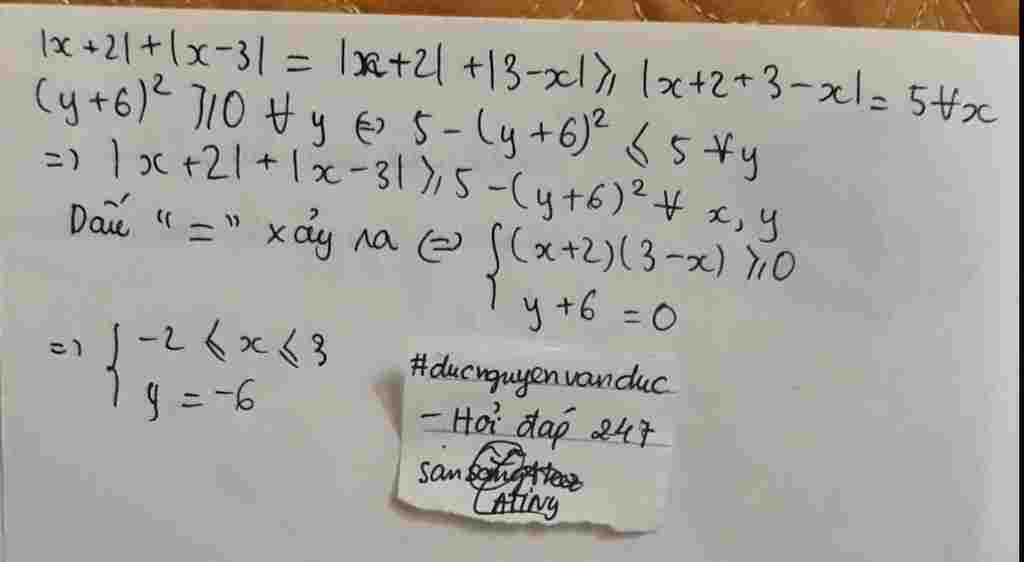 |x+2|+|x-3| = |x+2|+|3-x| ⩾ |x+2+3-x| = 5 ∀x
(y+6)² ⩾ 0 ∀ y ⇔ 5-(y+6)² ⩽ 5 ∀y
=> |x+2|+|x-3| ⩾ 5-(y+6)² ∀ x, y
Dấu "=" xảy ra ⇔ { (x+2)(3-x) ⩾ 0
y+6 = 0
=> { -2 ⩽ x ⩽ 3
y = -6
#ducnguyenvanduc
- Hỏi đáp 247
ATINY